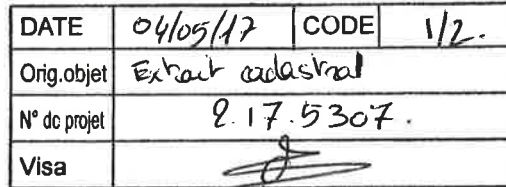 DATE 04/05/17 CODE 1/2.
Orig.objet Extrait cadastral
N° de projet 2.17.5307.
Visa